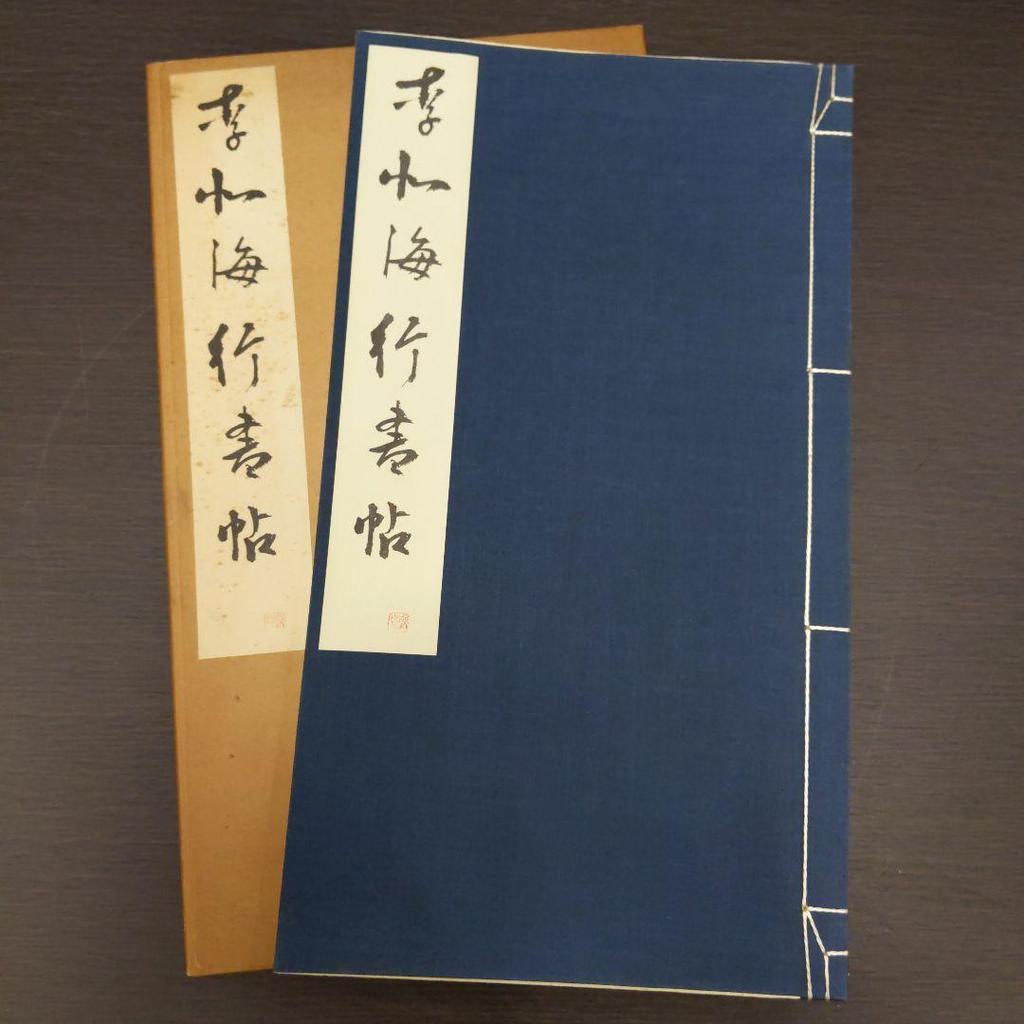 李北海行書帖
李北海行書帖